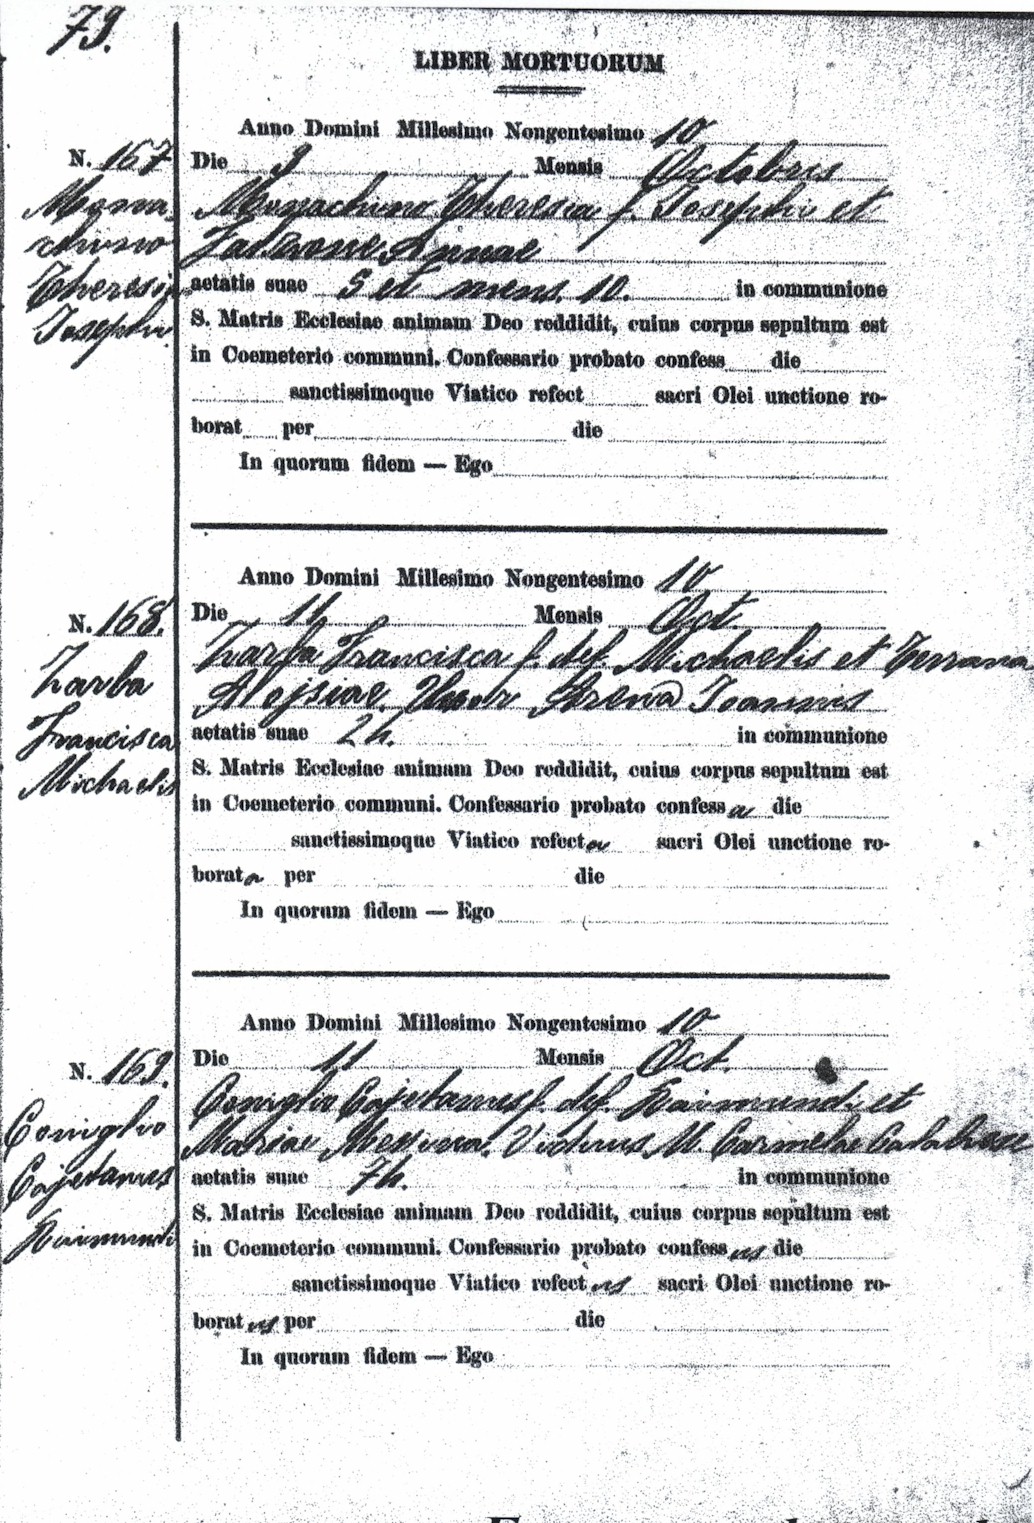 79.
LIBER MORTUORUM
Anno Domini Millesimo Nongentesimo 10
N. 167 Die 9 Mensis Octobris
Mona- Monachino Theresia f. Josephi et
chino Annae
Theresia aetatis suae 5 et mens. 10. in communione
Josephi S. Matris Ecclesiae animam Deo reddidit, cuius corpus sepultum est
in Coemeterio communi. Confessario probato confess die
sanctissimoque Viatico refect sacri Olei unctione ro-
borat per die
In quorum fidem — Ego
Anno Domini Millesimo Nongentesimo 10
N. 168. Die 11 Mensis Oct.
Zarba Francisca f. def. Michaelis et Terrana
Zarba Alojsiae. Uxor Arena Joannis
Francisca aetatis suae 24. in communione
Michaelis S. Matris Ecclesiae animam Deo reddidit, cuius corpus sepultum est
in Coemeterio communi. Confessario probato confess a die
sanctissimoque Viatico refect a sacri Olei unctione ro-
borat a per die
In quorum fidem — Ego
Anno Domini Millesimo Nongentesimo 10
N. 169. Die 11 Mensis Oct.
Coniglio Coniglio Cajetanus f. def. Raimundi et
Mariae Messina. Viduus M. Carmelae Calabrese
Cajetanus aetatis suae 74. in communione
Raimundi S. Matris Ecclesiae animam Deo reddidit, cuius corpus sepultum est
in Coemeterio communi. Confessario probato confess us die
sanctissimoque Viatico refect us sacri Olei unctione ro-
borat us per die
In quorum fidem — Ego